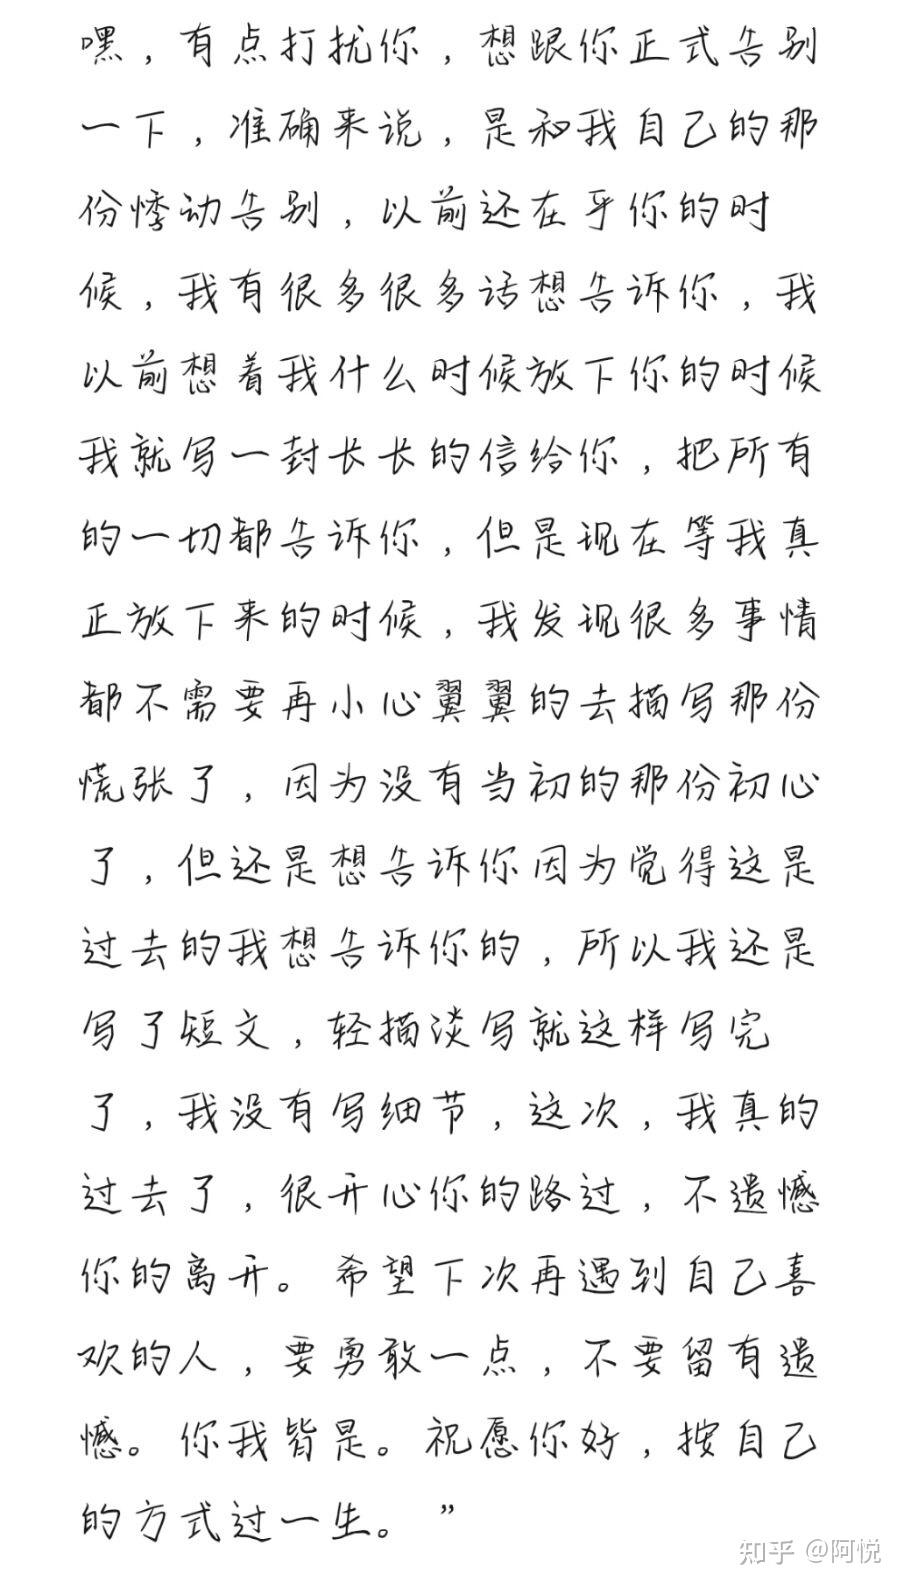 嘿，有点打扰你，想跟你正式告别
一下，准确来说，是和我自己的那
份悸动告别，以前还在乎你的时
候，我有很多很多话想告诉你，我
以前想着我什么时候放下你的时候
我就写一封长长的信给你，把所有
的一切都告诉你，但是现在等我真
正放下来的时候，我发现很多事情
都不需要再小心翼翼的去描写那份
慌张了，因为没有当初的那份初心
了，但还是想告诉你因为觉得这是
过去的我想告诉你的，所以我还是
写了短文，轻描淡写就这样写完
了，我没有写细节，这次，我真的
过去了，很开心你的路过，不遗憾
你的离开。希望下次再遇到自己喜
欢的人，要勇敢一点，不要留有遗
憾。你我皆是。祝愿你好，按自己
的方式过一生。”
知乎 @阿悦